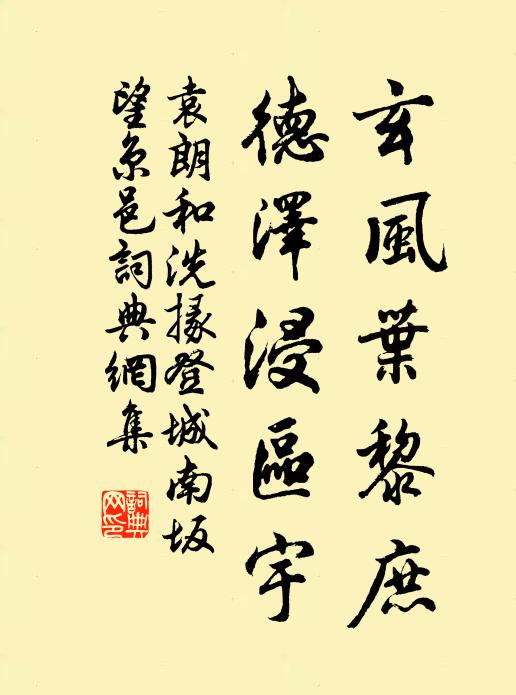 玄風葉黎庶
德澤浸區宇
袁朗和洗掾登城南坂
望京邑詞典網集
詞典网印